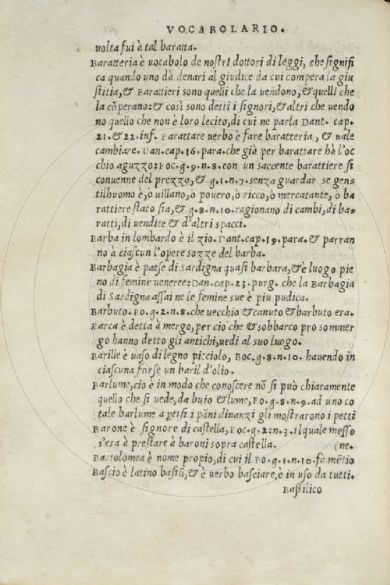 VOCABOLARIO.
uolta fui à tal baratta.
Baratteria è vocabolo de nostri dottori di leggi, che signifi
ca quando uno dà denari al giudice da cui compera la giu
stitia, & Barattieri sono quelli che la uendono, & quelli che
la cõperano: & così sono detti i signori, & altri che uendo
no quello che non è loro lecito, di cui ne parla Dant. cap.
21. & 22. inf. Barattare uerbo è fare baratteria, & uale
cambiare. Dan. cap. 16. para. che già per barattare hà l'oc
chio aguzzo: Boc. g. 9. n. 8. con un saccente barattiere si
conuenne del prezzo, & g. 1. n. 7. senza guardar se gen
tilhuomo è, o uillano, o pouero, o ricco, o mercatante, o ba
rattiere stato sia, & g. 8. n. 10. ragionano di cambi, di ba
ratti, di uendite & d'altri spacci.
Barba in lombardo è il zio. Dant. cap. 19. para. & parran
no à ciascun l'opere sozze del barba.
Barbagia è paese di Sardigna quasi barbara, & è luogo pie
no di femine uenere: Dan. cap. 23. purg. che la Barbagia
di Sardigna assai ne le femine sue è piu pudica.
Barbuto. Bo. g. 2. n. 8. che uecchio & canuto & barbuto era.
Barca è detta à mergo, per cio che & sobbarco pro sommer
go hanno detto gli antichi, uedi al suo luogo.
Barille è uaso di legno picciolo, Boc. g. 8. n. 10. hauendo in
ciascuna forse un baril d'olio.
Barlume, cio è in modo che conoscere nõ si può chiaramente
quello che si uede, da buio & lume, Bo. g. 8. n. 9. ad uno co
tale barlume apertisi i pãni dinanzi gli mostrarono i petti
Barone è signore di castella, Boc. g. 2. n. 3. il quale messo
s'era à prestare à baroni sopra castella. (ne.
Bartolomea è nome propio, di cui il Bo. g. 2. n. 10. fà mẽtio
Bascio è latino basili, & è uerbo basciare, è in uso da tutti.
Basilico